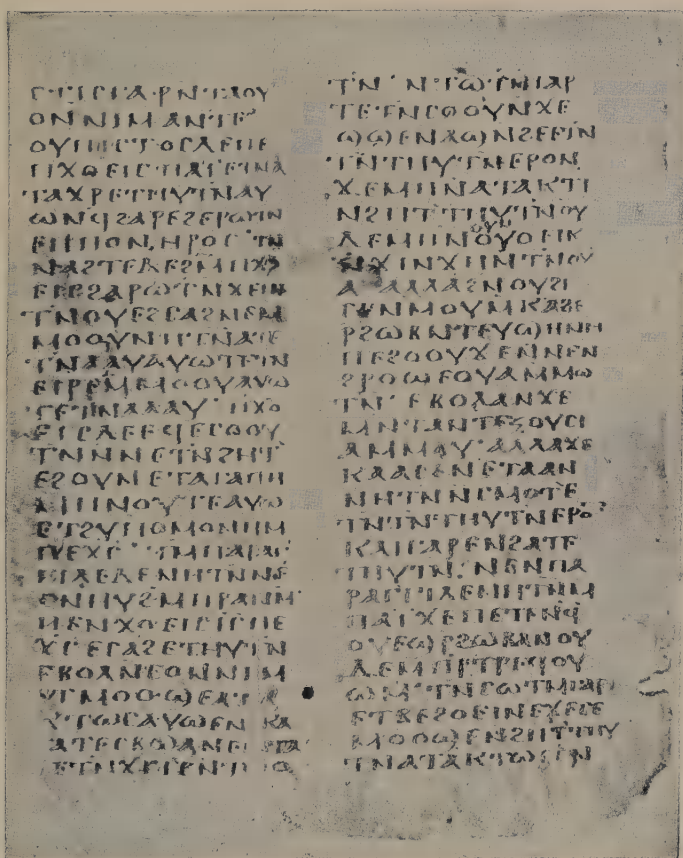 ⲧⲡⲓⲥⲧⲓⲥⲅⲁⲣⲛⲧⲁⲟⲩ
ⲟⲛⲛⲓⲙⲁⲛⲧⲉ
ⲟⲩⲡⲓⲥⲧⲟⲥⲇⲉⲡⲉ
ⲡϫⲟⲉⲓⲥⲡⲁⲓⲉⲧⲛⲁ
ⲧⲁϫⲣⲉⲧⲏⲩⲧⲛⲁⲩ
ⲱⲛϥϩⲁⲣⲉϩⲉⲣⲱⲧⲛ
ⲉⲡⲡⲟⲛⲏⲣⲟⲥ ⲧⲛ
ⲛⲁϩⲧⲉⲇⲉϩⲙⲡϫⲟ
ⲉⲓⲥϩⲁⲣⲱⲧⲛϫⲉⲛⲉ
ⲧⲛⲟⲩⲉϩⲥⲁϩⲛⲉⲙ
ⲙⲟⲟⲩⲛⲏⲧⲛⲁⲧⲉ
ⲧⲛⲁⲁⲩⲁⲩⲱⲧⲉⲧⲛ
ⲉⲓⲣⲉⲙⲙⲟⲟⲩⲁⲩⲱ
ⲧⲉⲧⲛⲁⲁⲁⲩ ⲡϫⲟ
ⲉⲓⲥⲇⲉⲉϥⲉⲥⲟⲟⲩ
ⲧⲛⲛⲛⲉⲧⲛϩⲏⲧ
ⲉϩⲟⲩⲛⲉⲧⲁⲅⲁⲡⲏ
ⲙⲡⲛⲟⲩⲧⲉⲁⲩⲱ
ⲉⲧϩⲩⲡⲟⲙⲟⲛⲏⲙ
ⲡⲉⲭⲥ ⲧⲙⲡⲁⲣⲁⲅ
ⲅⲓⲗⲉⲇⲉⲛⲏⲧⲛⲛⲉ
ⲥⲛⲏⲩϩⲙⲡⲣⲁⲛⲙ
ⲡⲉⲛϫⲟⲉⲓⲥⲓⲥⲡⲉ
ⲭⲥⲉⲥⲁϩⲉⲧⲏⲩⲧⲛ
ⲉⲃⲟⲗⲛⲥⲟⲛⲛⲓⲙ
ⲉⲧⲙⲟⲟϣⲉⲁⲧⲁ
ⲕⲧⲱⲥⲁⲩⲱⲉⲛⲕⲁ
ⲧⲁⲧⲉⲥⲃⲱⲁⲛⲉⲛⲧⲁ
ⲧⲉⲧⲛϫⲓⲧⲥ
ⲧⲛ ⲛⲧⲱⲧⲛⲅⲁⲣ
ⲧⲉⲧⲛⲥⲟⲟⲩⲛϫⲉ
ϣϣⲉⲛⲁϣⲛϩⲉⲉⲧⲛ
ⲧⲛⲧⲏⲩⲧⲛⲉⲣⲟⲛ
ϫⲉⲙⲡⲛⲁⲧⲁⲕⲧⲓ
ⲛϩⲏⲧⲧⲏⲩⲧⲛⲟⲩ
ⲇⲉⲙⲡⲛⲟⲩⲉⲙⲟⲉⲓⲕ
ⲛϫⲓⲛϫⲏⲛⲧⲛⲟⲩ
ⲁ ⲁⲗⲗⲁϩⲛⲟⲩϩⲓ
ⲥⲉⲙⲛⲟⲩⲙⲕⲁϩⲉ
ⲣϩⲱⲃⲛⲧⲉⲩϣⲏⲛⲙ
ⲡⲉϩⲟⲟⲩϫⲉⲛⲛⲉⲛ
ϩⲣⲟϣⲉⲟⲩⲁⲙⲙⲱ
ⲧⲛ ⲉⲃⲟⲗⲁⲛϫⲉ
ⲙⲛⲧⲁⲛⲧⲉⲝⲟⲩⲥⲓ
ⲁⲙⲙⲁⲩ ⲁⲗⲗⲁϫⲉ
ⲕⲁⲁⲥⲉⲛⲉⲧⲁⲁⲛ
ⲛⲏⲧⲛⲛⲥⲙⲟⲧⲉ
ⲧⲛⲧⲛⲧⲏⲩⲧⲛⲉⲣⲟ
ⲕⲁⲓⲅⲁⲣⲉⲛϩⲁⲧⲉ
ⲧⲏⲩⲧⲛ ⲛⲉⲛⲡⲁ
ⲣⲁⲅⲅⲓⲗⲉⲛⲏⲧⲛⲙ
ⲡⲁⲓϫⲉⲡⲉⲧⲛϥ
ⲟⲩⲉϣⲣϩⲱⲃⲁⲛⲟⲩ
ⲇⲉⲙⲡⲣⲧⲣⲉϥⲟⲩ
ⲱⲙ ⲧⲛⲥⲱⲧⲙⲅⲁⲣ
ⲉⲧⲃⲉϩⲟⲉⲓⲛⲉϫⲉⲥⲉ
ⲙⲟⲟϣⲉⲛϩⲏⲧⲧⲏⲩ
ⲧⲛⲁⲧⲁⲕⲧⲱⲥⲉⲛ